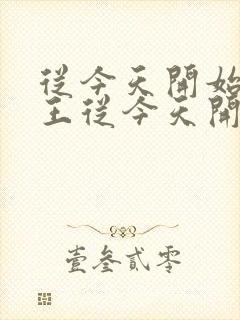 從今天開始
王從今天開
壹叁貳零